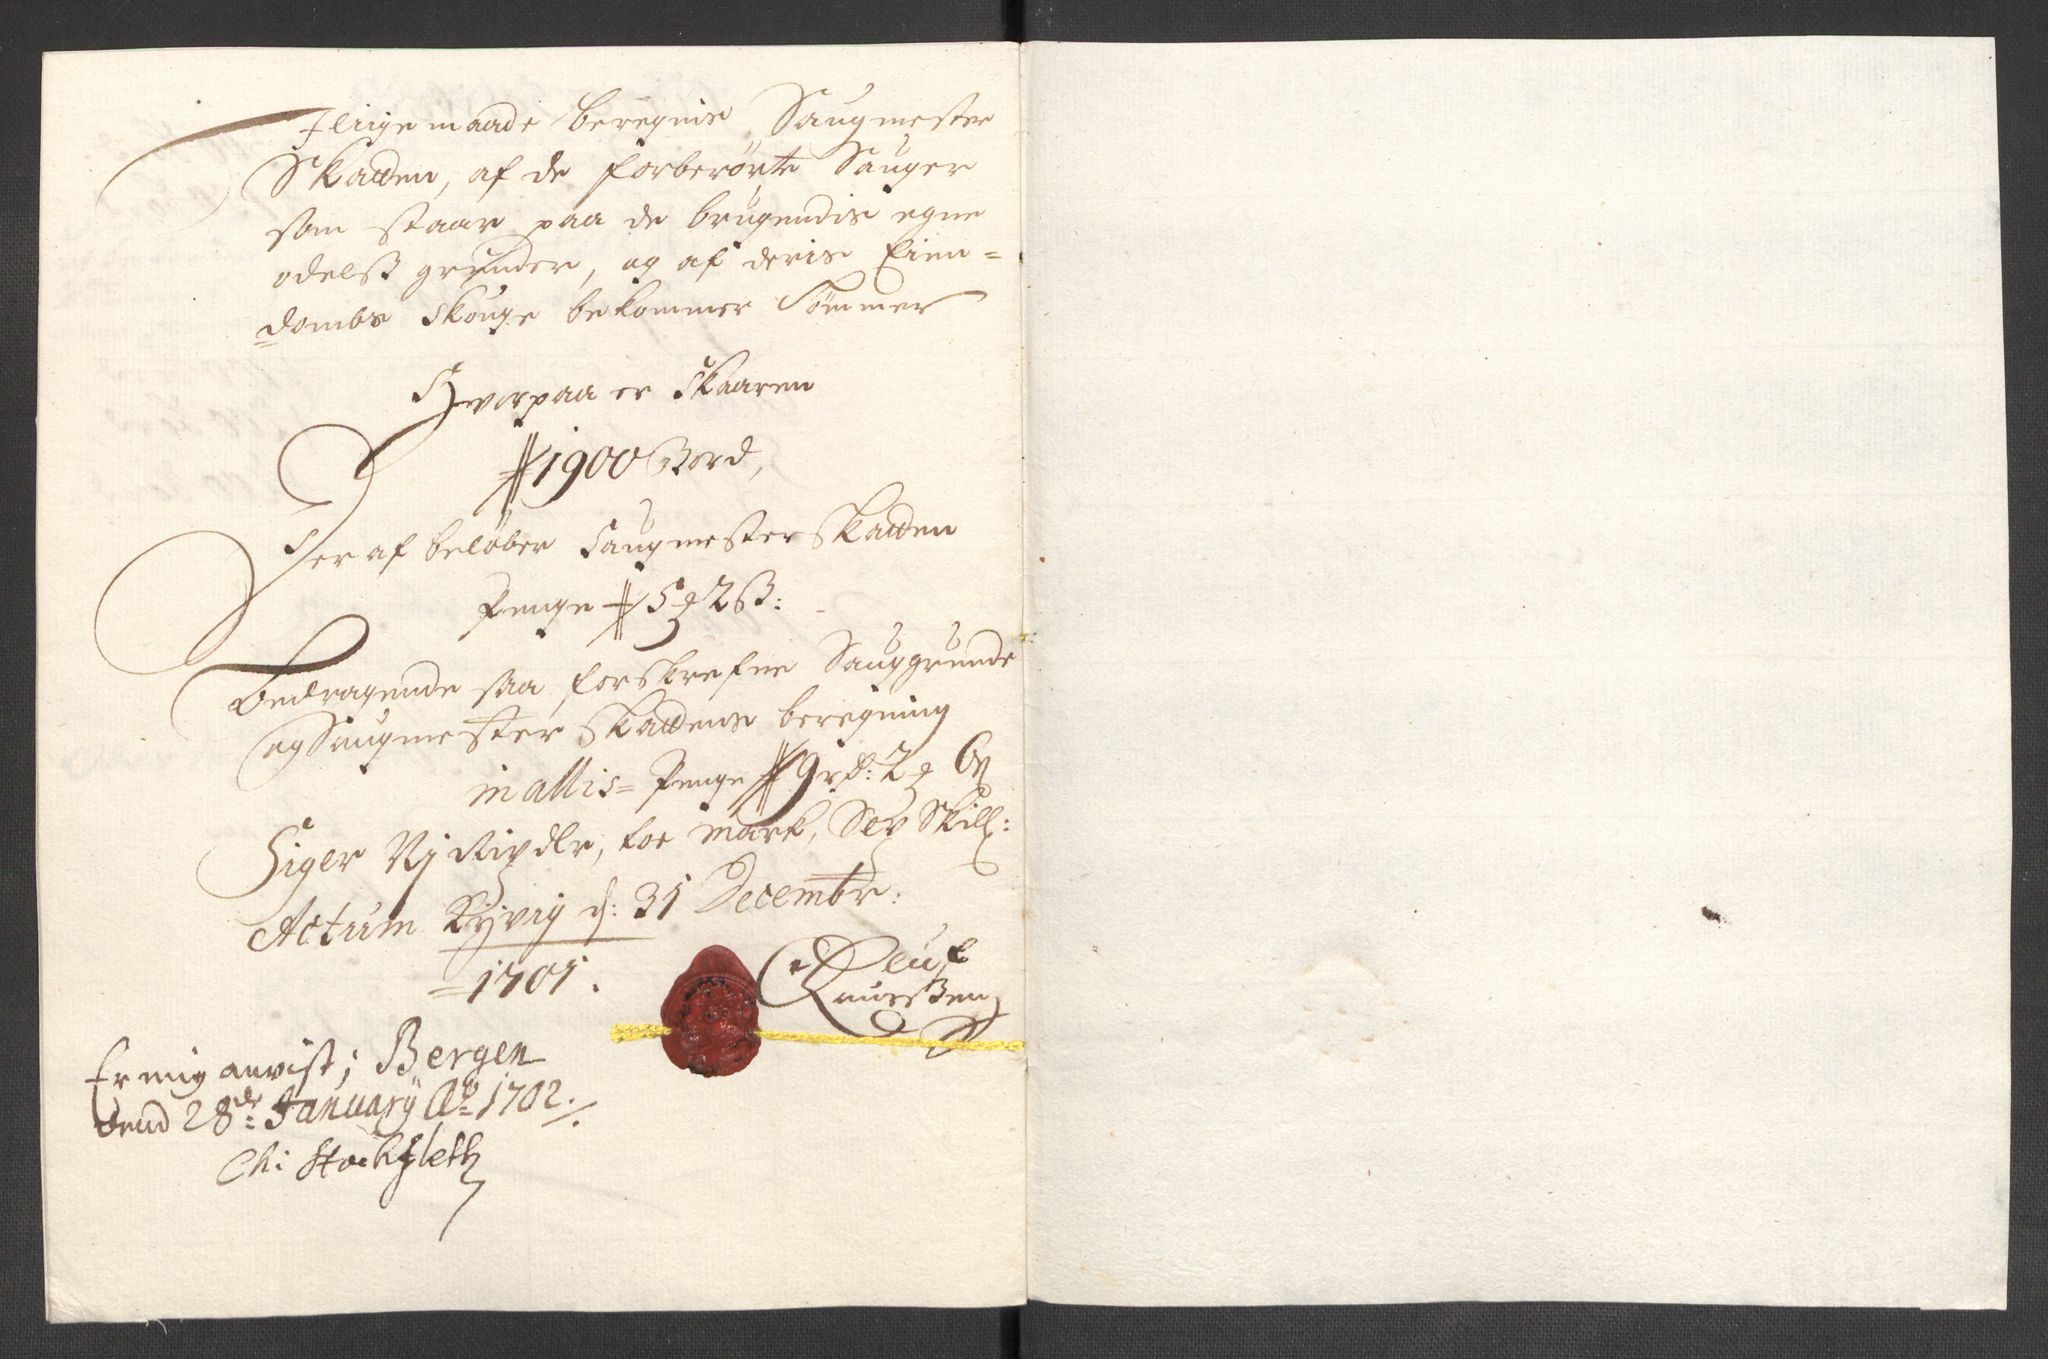 I liige maade beregnis Saugmester
Skatten, af de forberørte Sauger
som staar paa de brugendis egne
odelsß grunder, og af deris Eien=
=dombs Skouge bekommer Tømmer
Hvorpaa er Skaaren
1900 Bord,
Der af beløber Saugmester Skatten
Penge 5 2 ß:
Bedragende saa forskrefne Sauggrunde
og Saugmester Skattens beregning
in allis= Penge 9 rd: 2
Siger Nj Rixdlr, toe mark, Sex Skill:
Actum Ryvig d: 31 Decembr:
=1701.
Leuf
Laurßen
Er mig anvist; Bergen
dend 28de January Ao 1702.
Chr Stockfleth